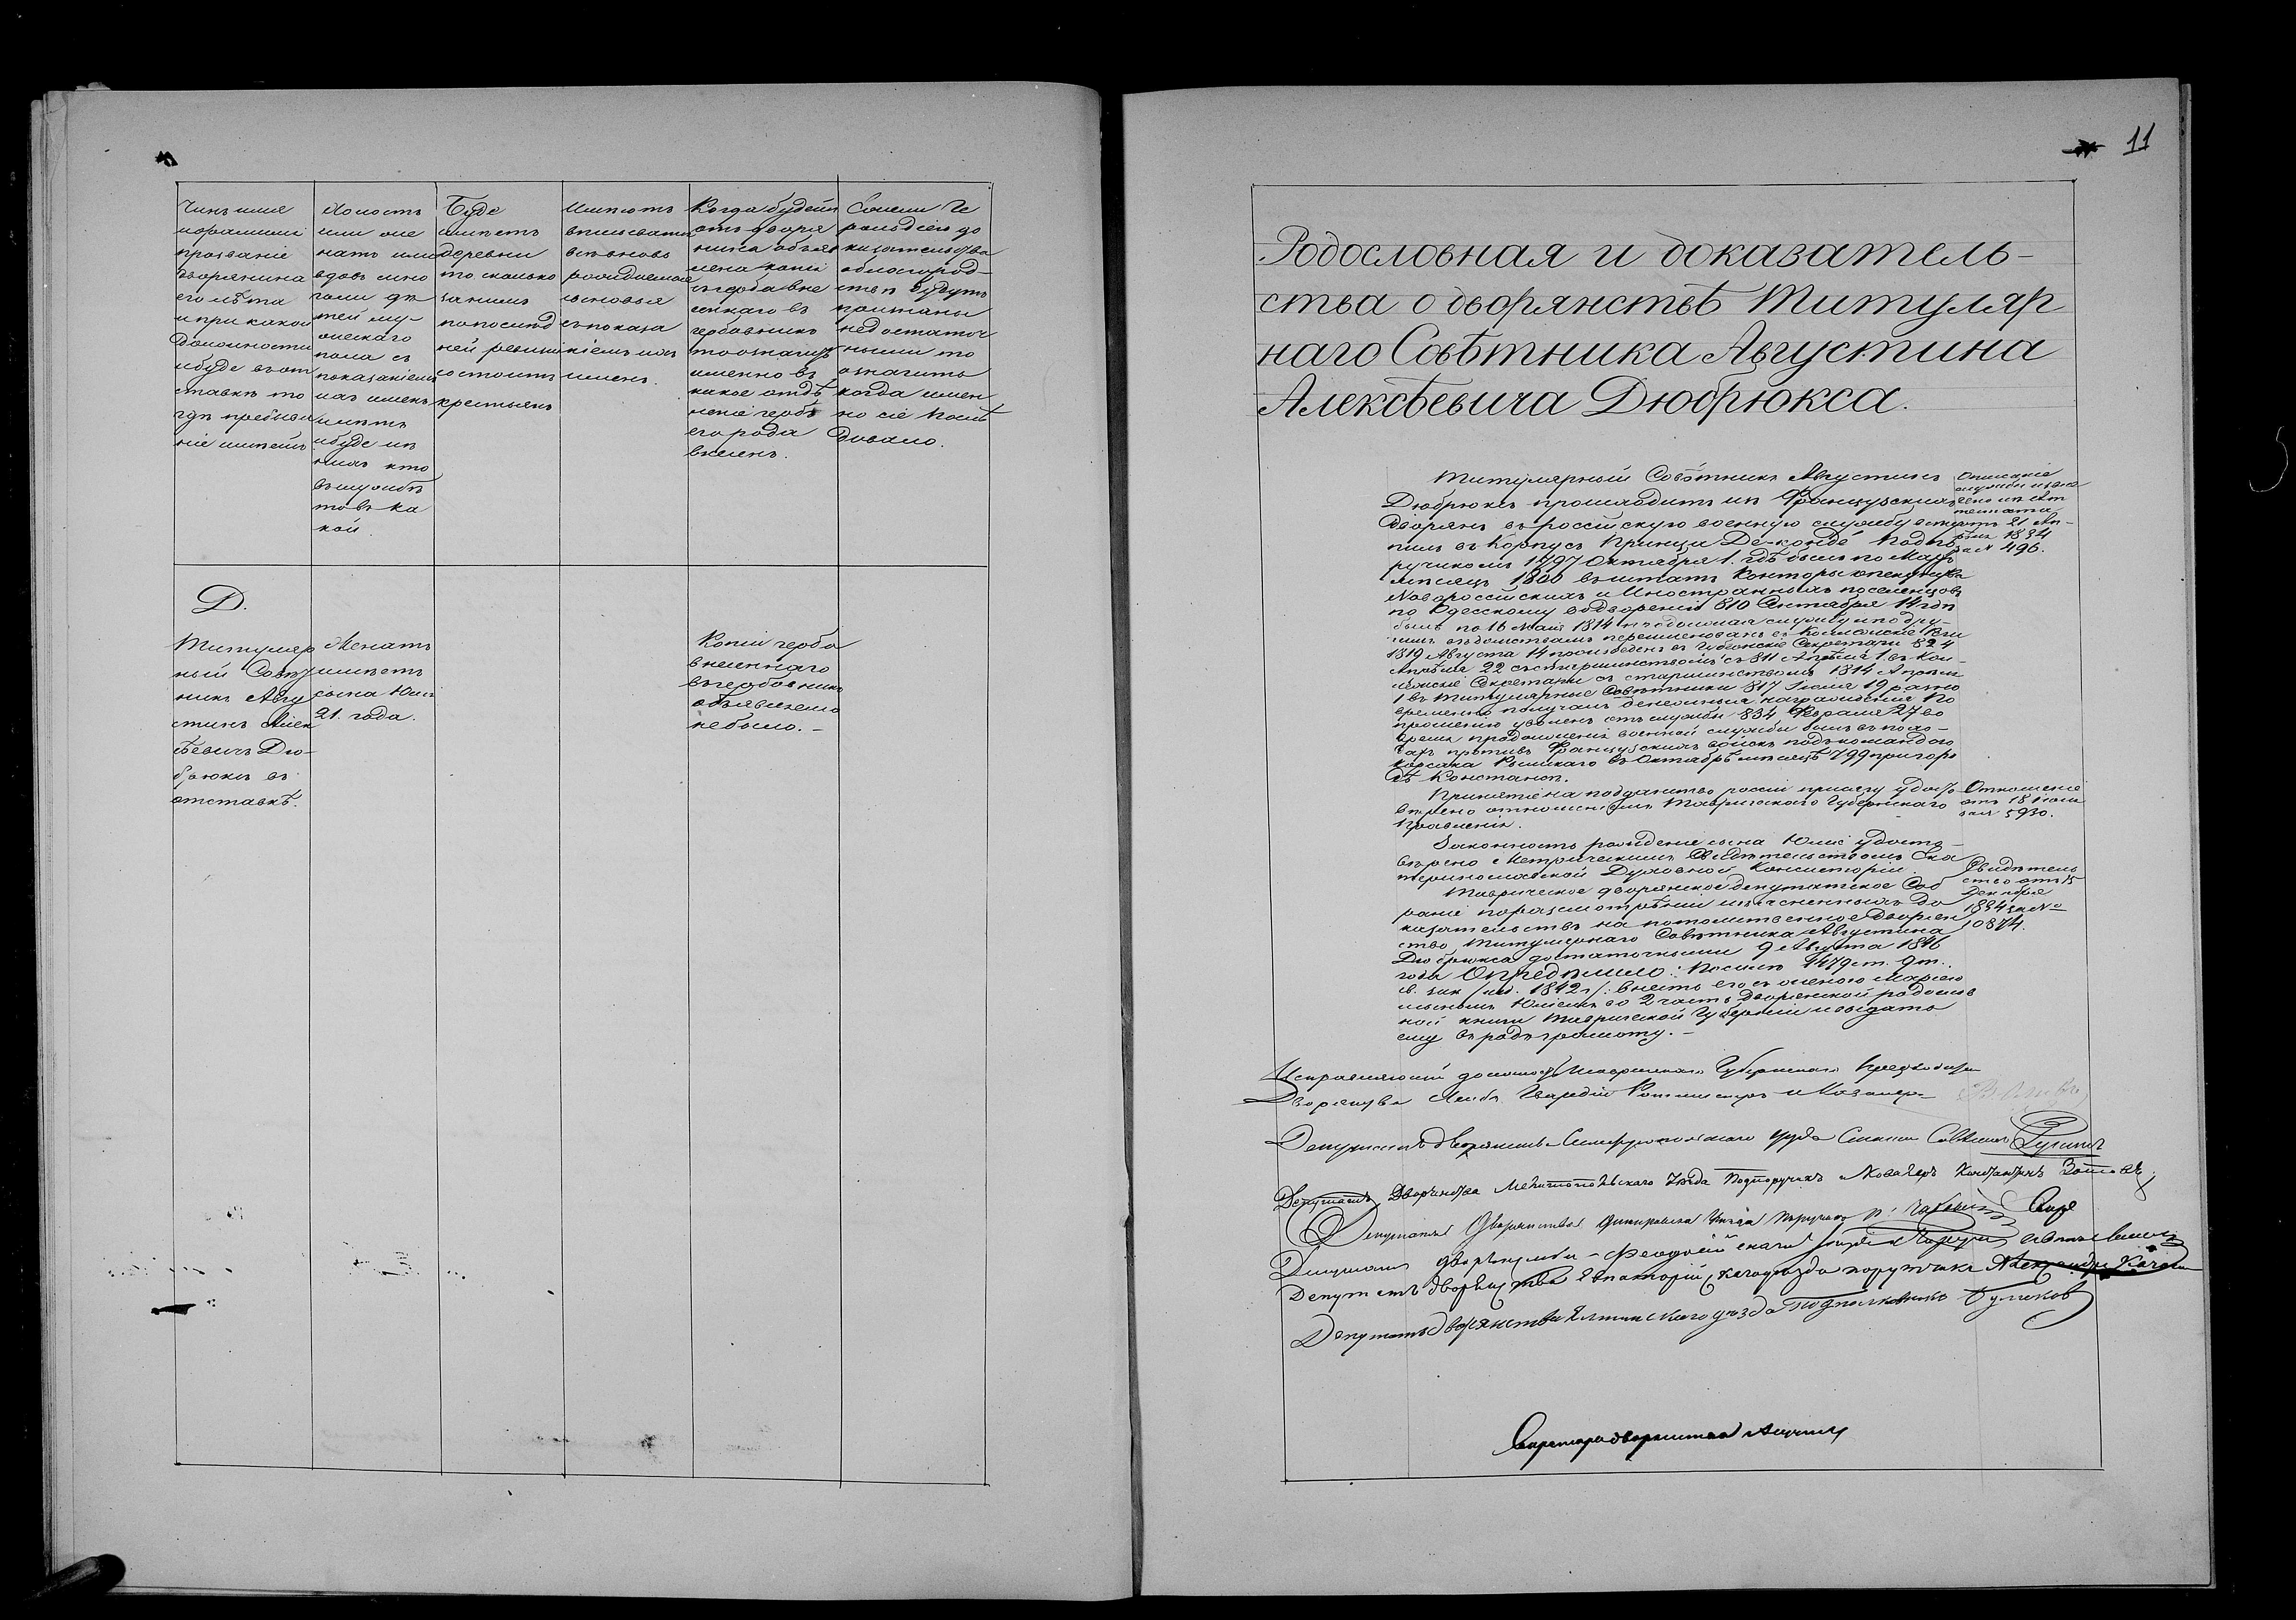 Чинъ имя
и фамилія
прозваніе
дворянина
его лѣта
и при какой
должности
и буде въ от
ставкѣ то
гдѣ пребыва
ніе имѣетъ
Холостъ
или же
натъ или
вдовъ сколь
дѣ
тей му-
жескаго
пола съ
показаніемъ
ихъ именъ
имѣетъ
и буде изъ
нихъ кто
въ службѣ
то въ ка
кой.
Буде
имѣетъ
деревни
то сколько
за нимъ
по послѣд
ней ревизіи
состоитъ
крестьянъ
Имѣютъ
вписыватся
всѣ вновь
рождаемые
сыновья
съ показа
ніемъ ихъ
именъ.
Когда будетъ
отъ дворя
нина объяв
лена копія
съ герба вне
сеннаго въ
гербовникъ
то означить
именно въ
какое отдѣ
леніе гербъ
его рода
внесенъ.
Если Ге
рольдіею до
казательства
о благород-
ствѣ будутъ
признаны
недостаточ
ными то
означить
когда имен
но сіе послѣ
довало.
Д.
Титуляр
ный Совѣт
никъ Авгу
стинъ Алек
сѣевичъ Дю-
брюксъ въ
отставкѣ.
Женатъ
имѣетъ
сына Юлія
21. года.
Копіи герба
внесеннаго
въ гербовникъ
объявлено
не было. -
11
Родословная и доказатель-
ства о дворянствѣ Титуляр
наго Совѣтника Августина
Алексѣевича Дюбрюкса.
Титулярный Совѣтникъ Августинъ
Дюбрюксъ происходитъ изъ Французскихъ
дворянъ въ россійскую военную службу всту
пилъ въ Корпусъ Принца Де-конде Подпо
ручикомъ 1797 Октября 1. гдѣ былъ по Мартъ
мѣсяцъ 1800 въ штатъ Конторы опекунства
Новороссійскихъ и Иностранныхъ поселенцовъ
по Одесскому водворенію 810 Сентября 14 гдѣ
былъ по 16 Мая 1814 продолжая службу и по дру-
гимъ вѣдомствамъ переименованъ въ Коллежскіе Реги
1819 Августа 14 произведенъ въ Губернскіе Секретари 824
Апрѣля 22 съ старшинствомъ съ 811 Апрѣля 1. въ Кол-
лежскіе Секретари съ старшинствомъ 1814 Апрѣля
1 въ Титулярные Совѣтники 817 Іюля 19 разно
временно получалъ денежныя награжденія По
прошенію уволенъ отъ службы 834 Февраля 27 во
время продолженія военной службы былъ въ похо-
дахъ противъ Французскихъ войскъ подъ командою
Корсака Рымскаго въ Октябрѣ мѣсяцѣ 799 при горо
дѣ Констанст.
Принятіе на подданство россіи присягу удосто
вѣрено отношеніемъ Таврическаго Губернскаго
Правленія.
Законность рожденія сына Юлія удосто-
вѣрено Метрическимъ Свидѣтельствомъ Ека
теринославской Духовной Консисторіи.
Таврическое дворянское депутатское Соб
раніе поразсмотрѣніи изъясненныхъ до
казательствъ на потомственное дворян
ство Титулярнаго Совѣтника Августина
Дюбрюкса достаточными 9 Августа 1846
года Опредѣлило: Послѣ 1479 ст. 9 т.
св. зак /изд. 1842 г/: внесть его съ женою Маріею
и сыномъ Юліемъ во 2 часть дворянской родослов
ной книги Таврической Губерніи и выдать
ему въ родъ грамоту. -
Описаніе
службы
изъ Ат
тестата
отъ 21 Ап-
рѣля 1834
за № 496.
Отношеніе
отъ 18 Іюля
за № 5930.
Свидѣтель
ство отъ 15
Декабря
1834 за №
10874.
Исправляющій должность Таврическаго Губернскаго Предводителя
Дворянства Лейбъ Гвардіи Ротмистръ и Кавалеръ
Депутатъ дворянства Симферопольскаго уѣзда
Депутатъ Дворянства Мелитопольскаго Уѣзда Подпоручикъ и Кавалеръ Константинъ
Депутатъ Дворянства Днѣпровскаго Уѣзда Поручикъ
Депутатъ дворянства Феодосійскаго уѣзда
Депутатъ дворянства Евпаторійскаго уѣзда поручикъ Александръ
Депутатъ дворянства Ялтинскаго уѣзда Подполковникъ
Секретарь дворянства